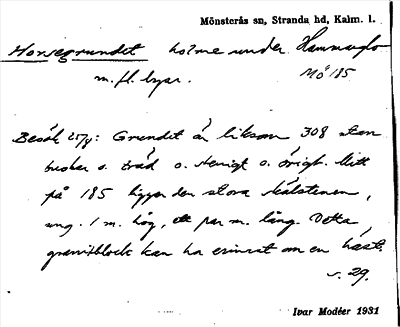 Mönsterås sn, Stranda hd, Kalm. l.
Horsegrundet holme under Hammarglo
m. fl. byar. Mö 185
Besök 25/7: Grundet är liksom 308 utan
buskar o. träd o. stenigt o. övigt. Mitt
på 185 ligger den stora skälstenen,
ung. 1 m. hög, ett par m. lång. Detta
granitblock kan ha erinrat om en häst.
s. 29.
Ivar Modéer 1931